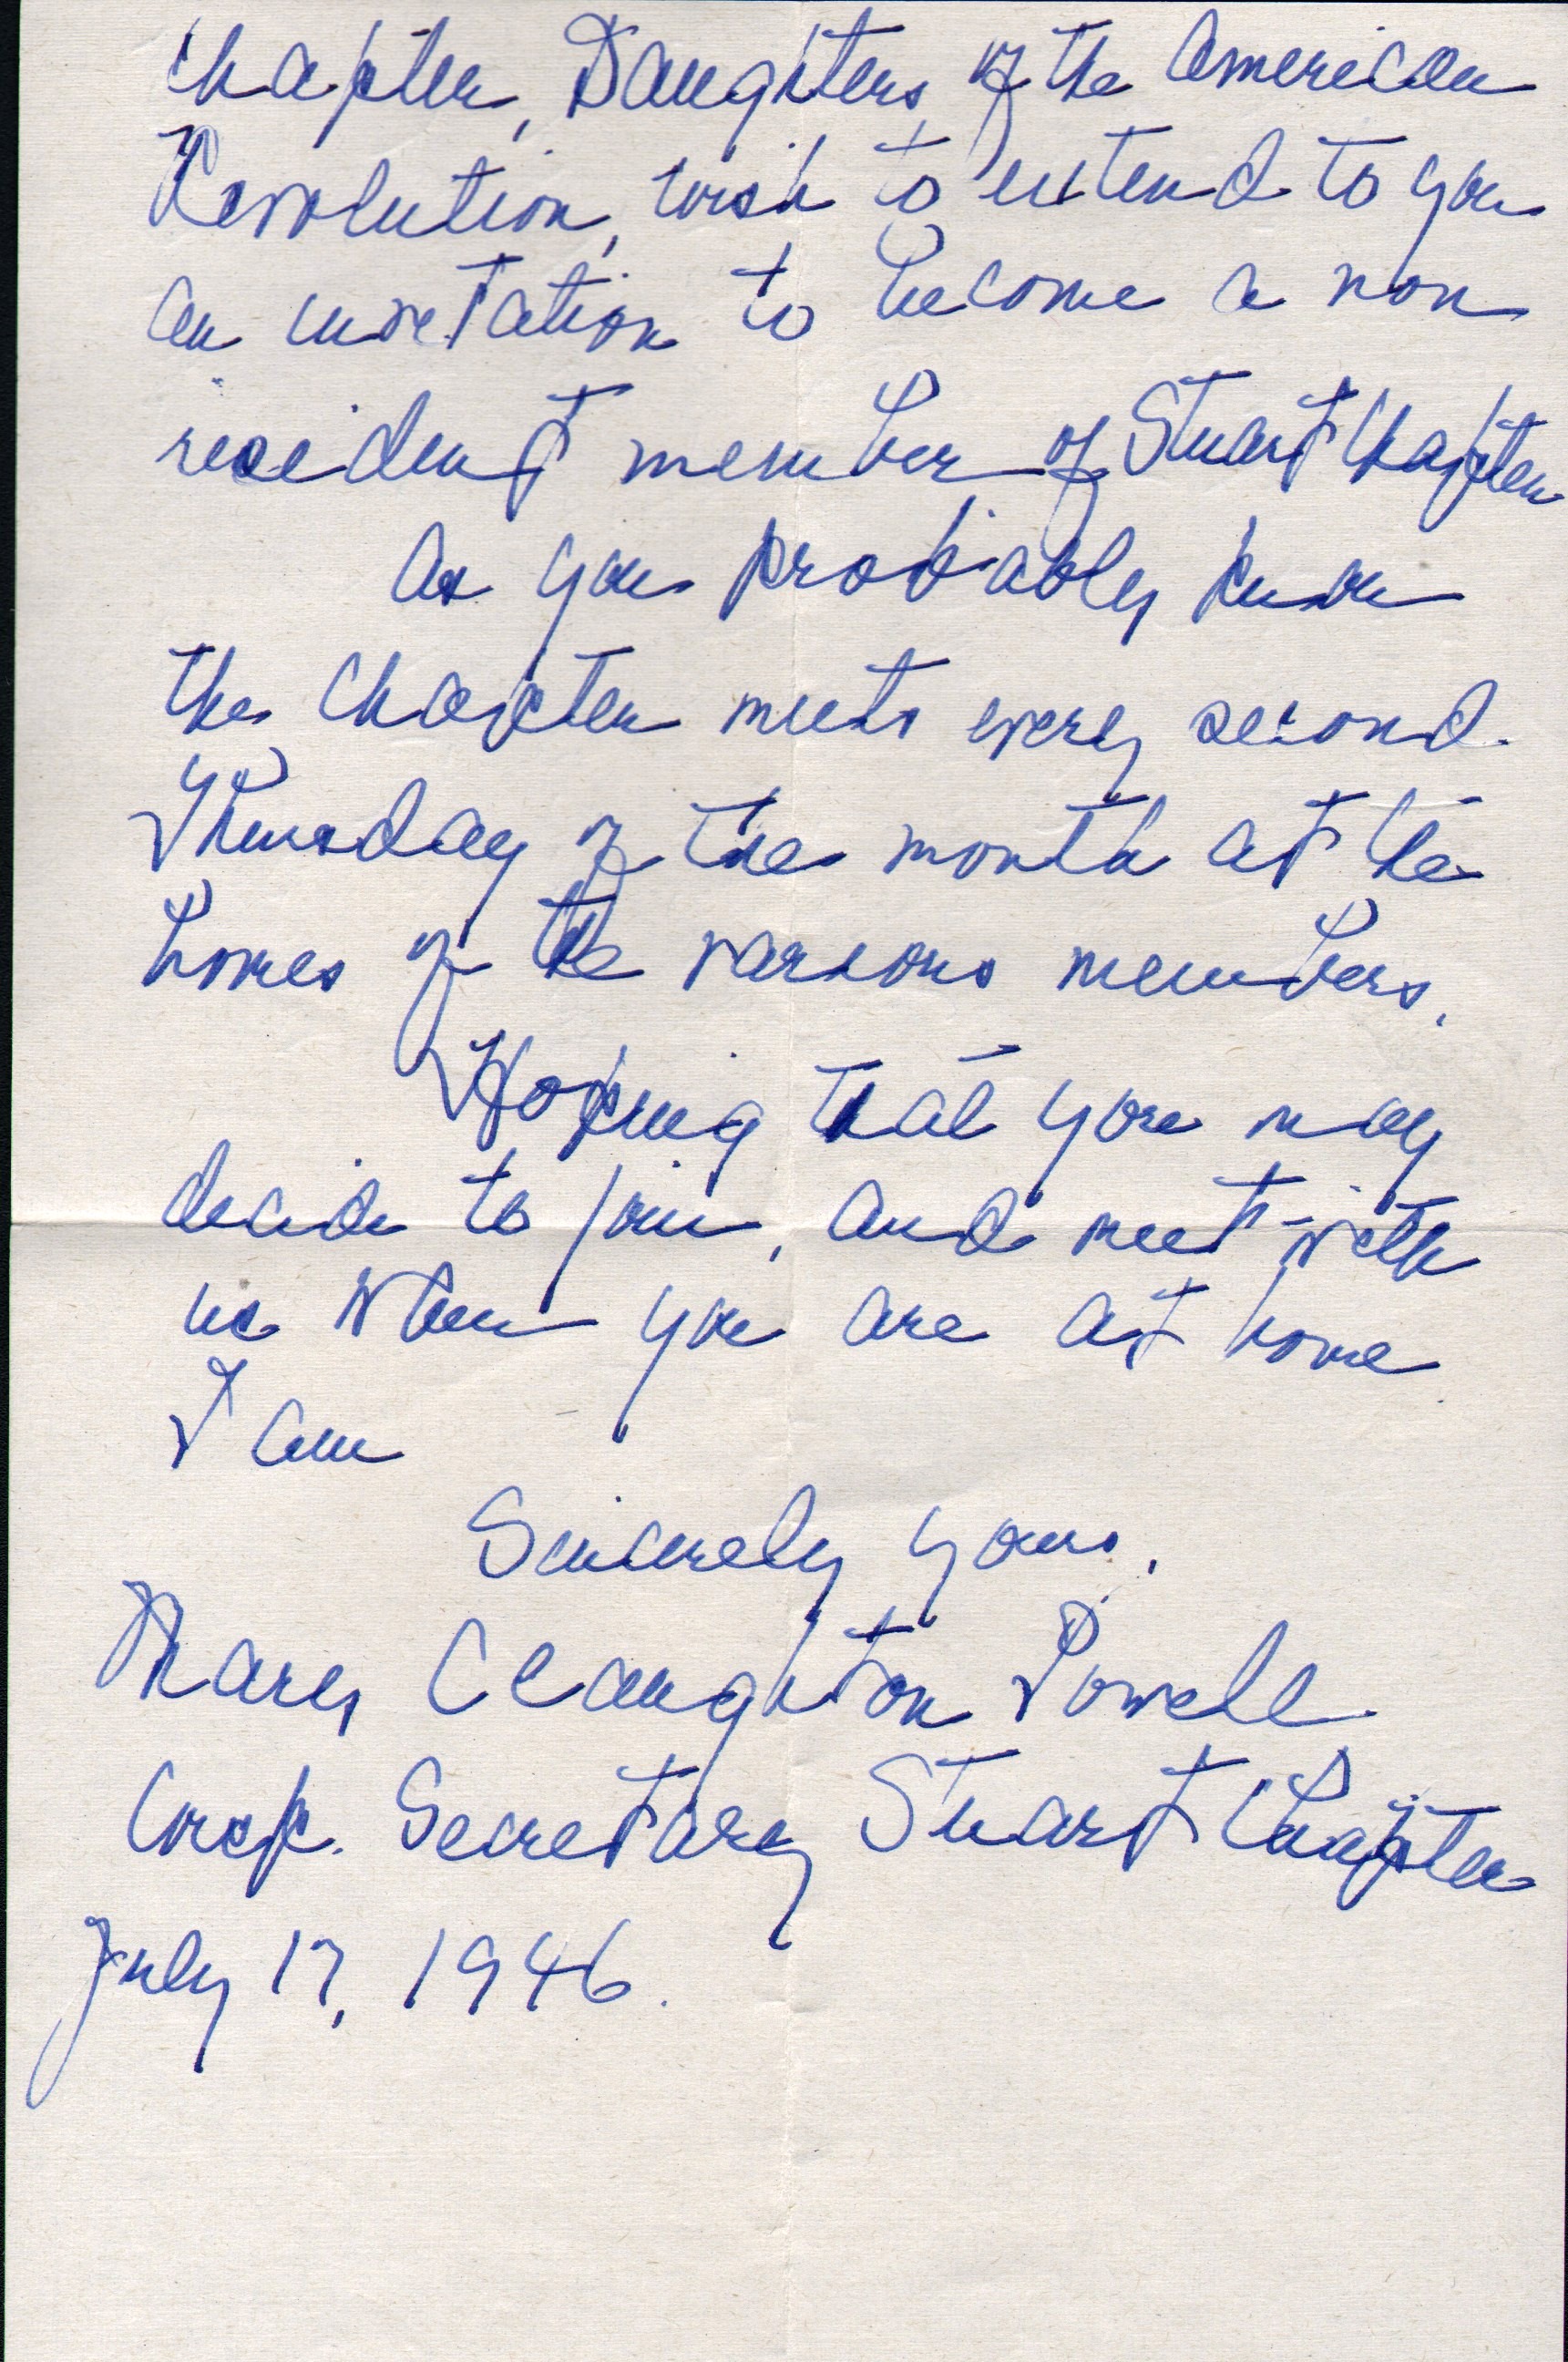 Chapter, Daughters of the American
Revolution, wish to extend to you
an invitation to become a non
resident member of Stuart Chapter
As you probably know
the Chapter meets every second
Thursday of the month at the
homes of the various members.
Hoping that you may
decide to join, and meet with
us when you are at home
I am
Sincerely yours,
Mary Claughton Powell
Corsp. Secretary Stuart Chapter
July 17, 1946.